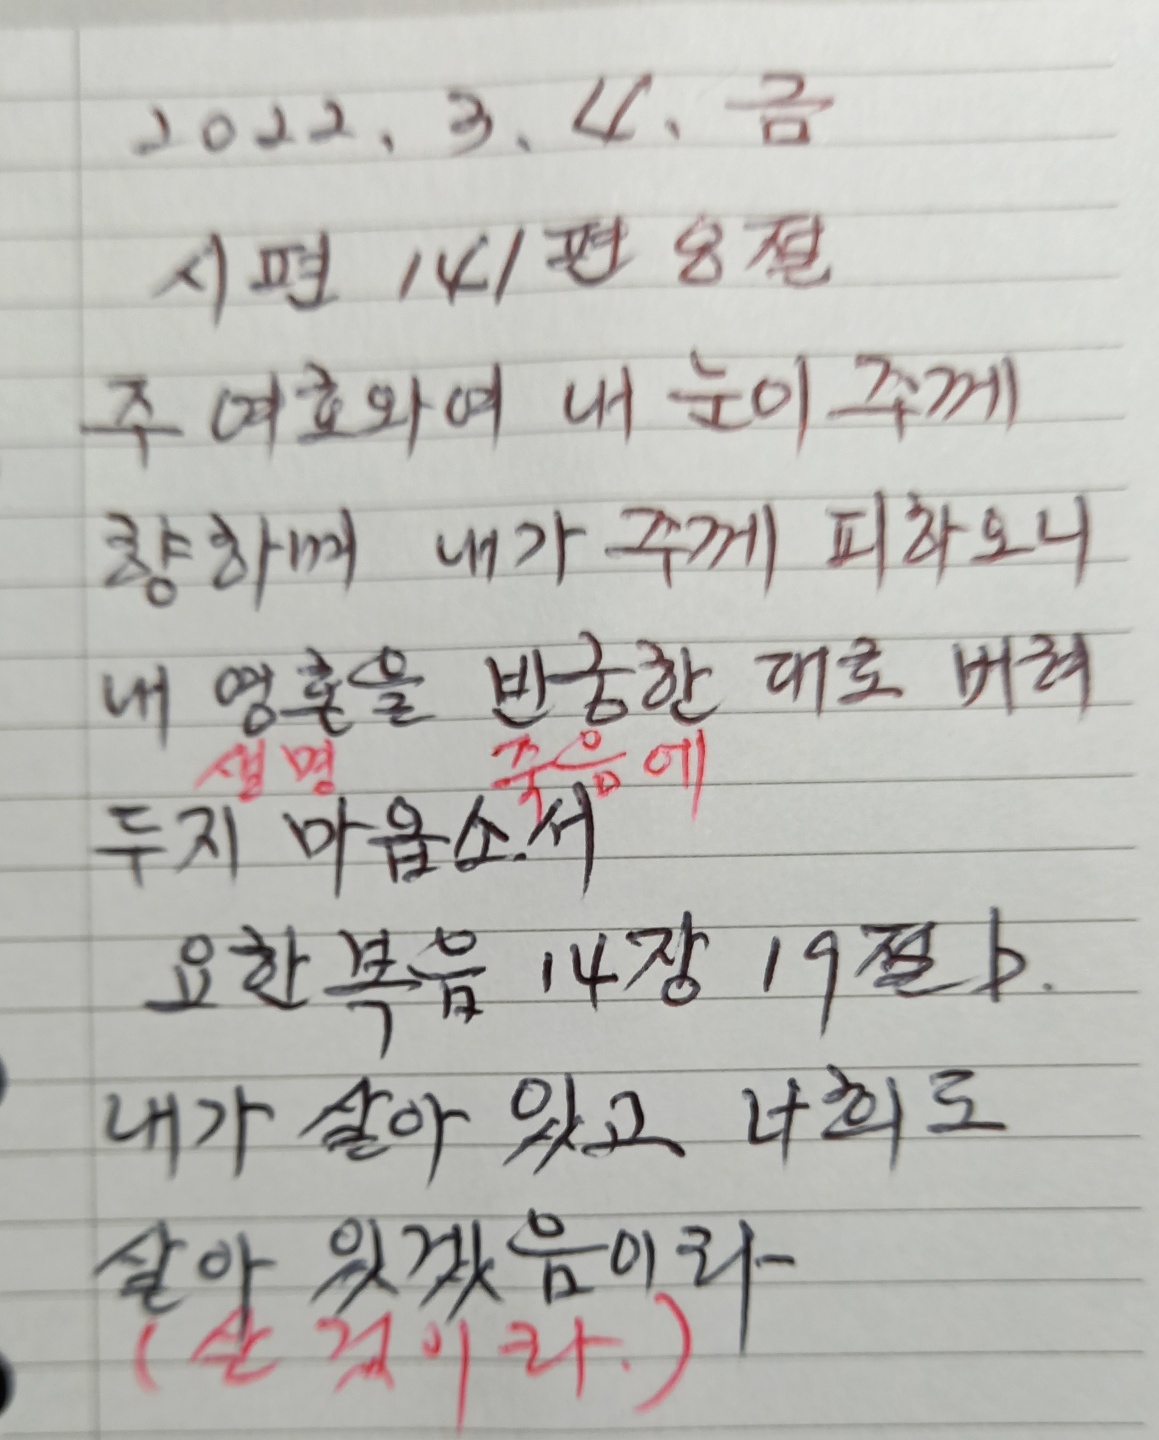 2022. 3. 4. 금
시편 141편 8절
주 여호와여 내 눈이 주께
향하며 내가 주께 피하오니
내 영혼을 빈궁한 대로 버려
생명 죽음에
두지 마옵소서
요한복음 14장 19절 b.
내가 살아 있고 너희도
살아 있겠음이라
(산 것이라.)